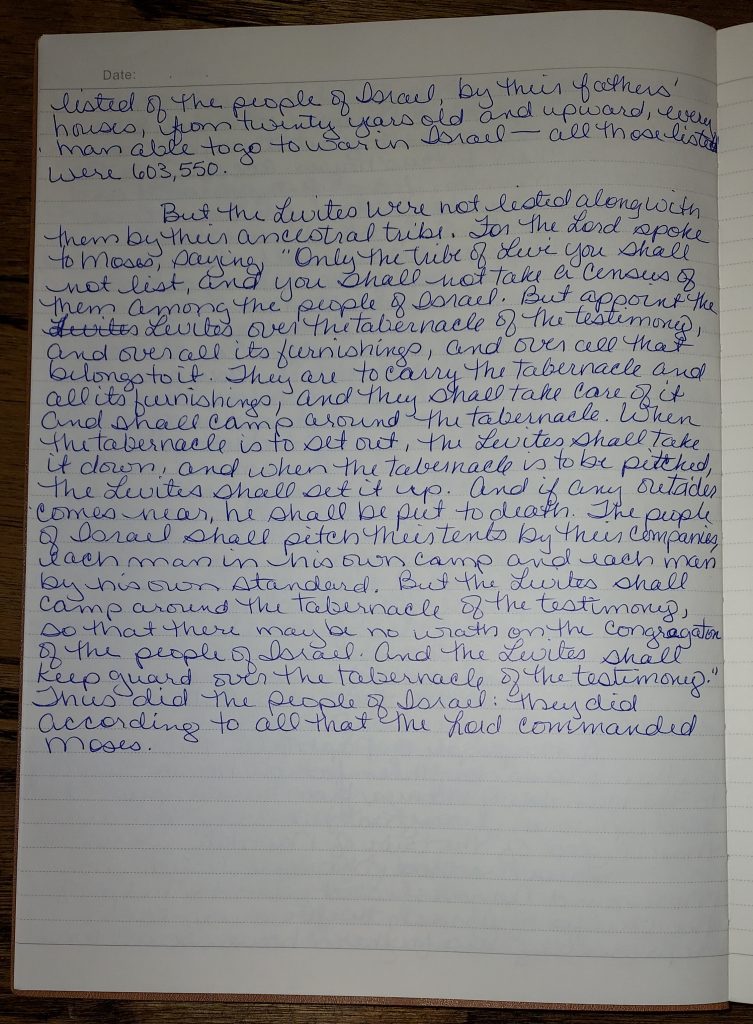 Date:
listed of the people of Israel, by their fathers'
houses, from twenty years old and upward, every
man able to go to war in Israel — all those listed
were 603,550.
But the Levites were not listed along with
them by their ancestral tribe. For the Lord spoke
to Moses, saying, "Only the tribe of Levi you shall
not list, and you shall not take a census of
them among the people of Israel. But appoint the
Levites Levites over the tabernacle of the testimony,
and over all its furnishings, and over all that
belongs to it. They are to carry the tabernacle and
all its furnishings, and they shall take care of it
and shall camp around the tabernacle. When
the tabernacle is to set out, the Levites shall take
it down, and when the tabernacle is to be pitched,
the Levites shall set it up. And if any outsider
comes near, he shall be put to death. The people
of Israel shall pitch their tents by their companies,
each man in his own camp and each man
by his own standard. But the Levites shall
camp around the tabernacle of the testimony,
so that there may be no wrath on the congragation
of the people of Israel. And the Levites shall
keep guard over the tabernacle of the testimony."
Thus did the people of Israel: they did
according to all that the Lord commanded
Moses.